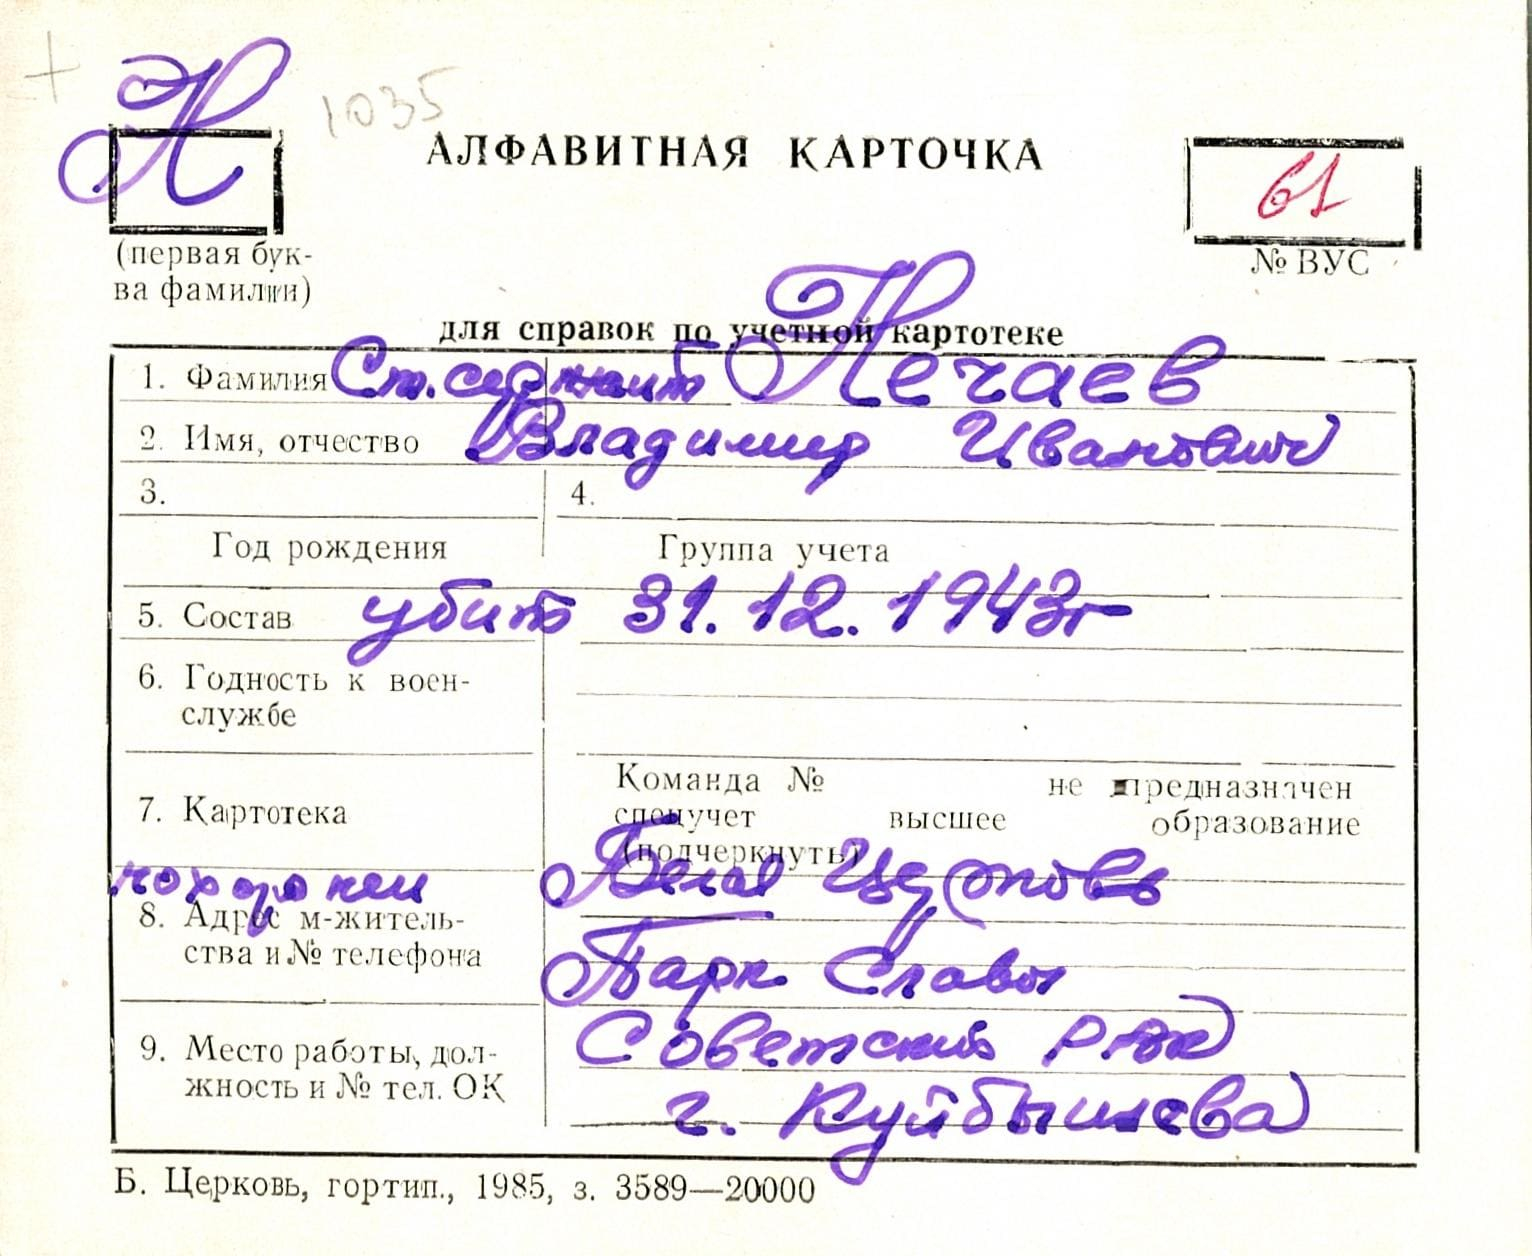 Н 1035
АЛФАВИТНАЯ КАРТОЧКА
61
(первая бук-
ва фамилии)
№ ВУС
для справок по учетной картотеке
1. Фамилия Ст. сержант Нечаев
2. Имя, отчество Владимир Иванович
3. 4.
Год рождения Группа учета
5. Состав убит 31.12.1943г
6. Годность к воен-
службе
Команда № не предназначен
7. Картотека спецучет высшее образование
(подчеркнуть)
похоронен Белая Церковь
8. Адрес м-житель-
ства и № телефона Парк Славы
9. Место работы, дол-
жность и № тел. ОК
Советский РВК
г. Куйбышева
Б. Церковь, гортип., 1985, з. 3589—20000